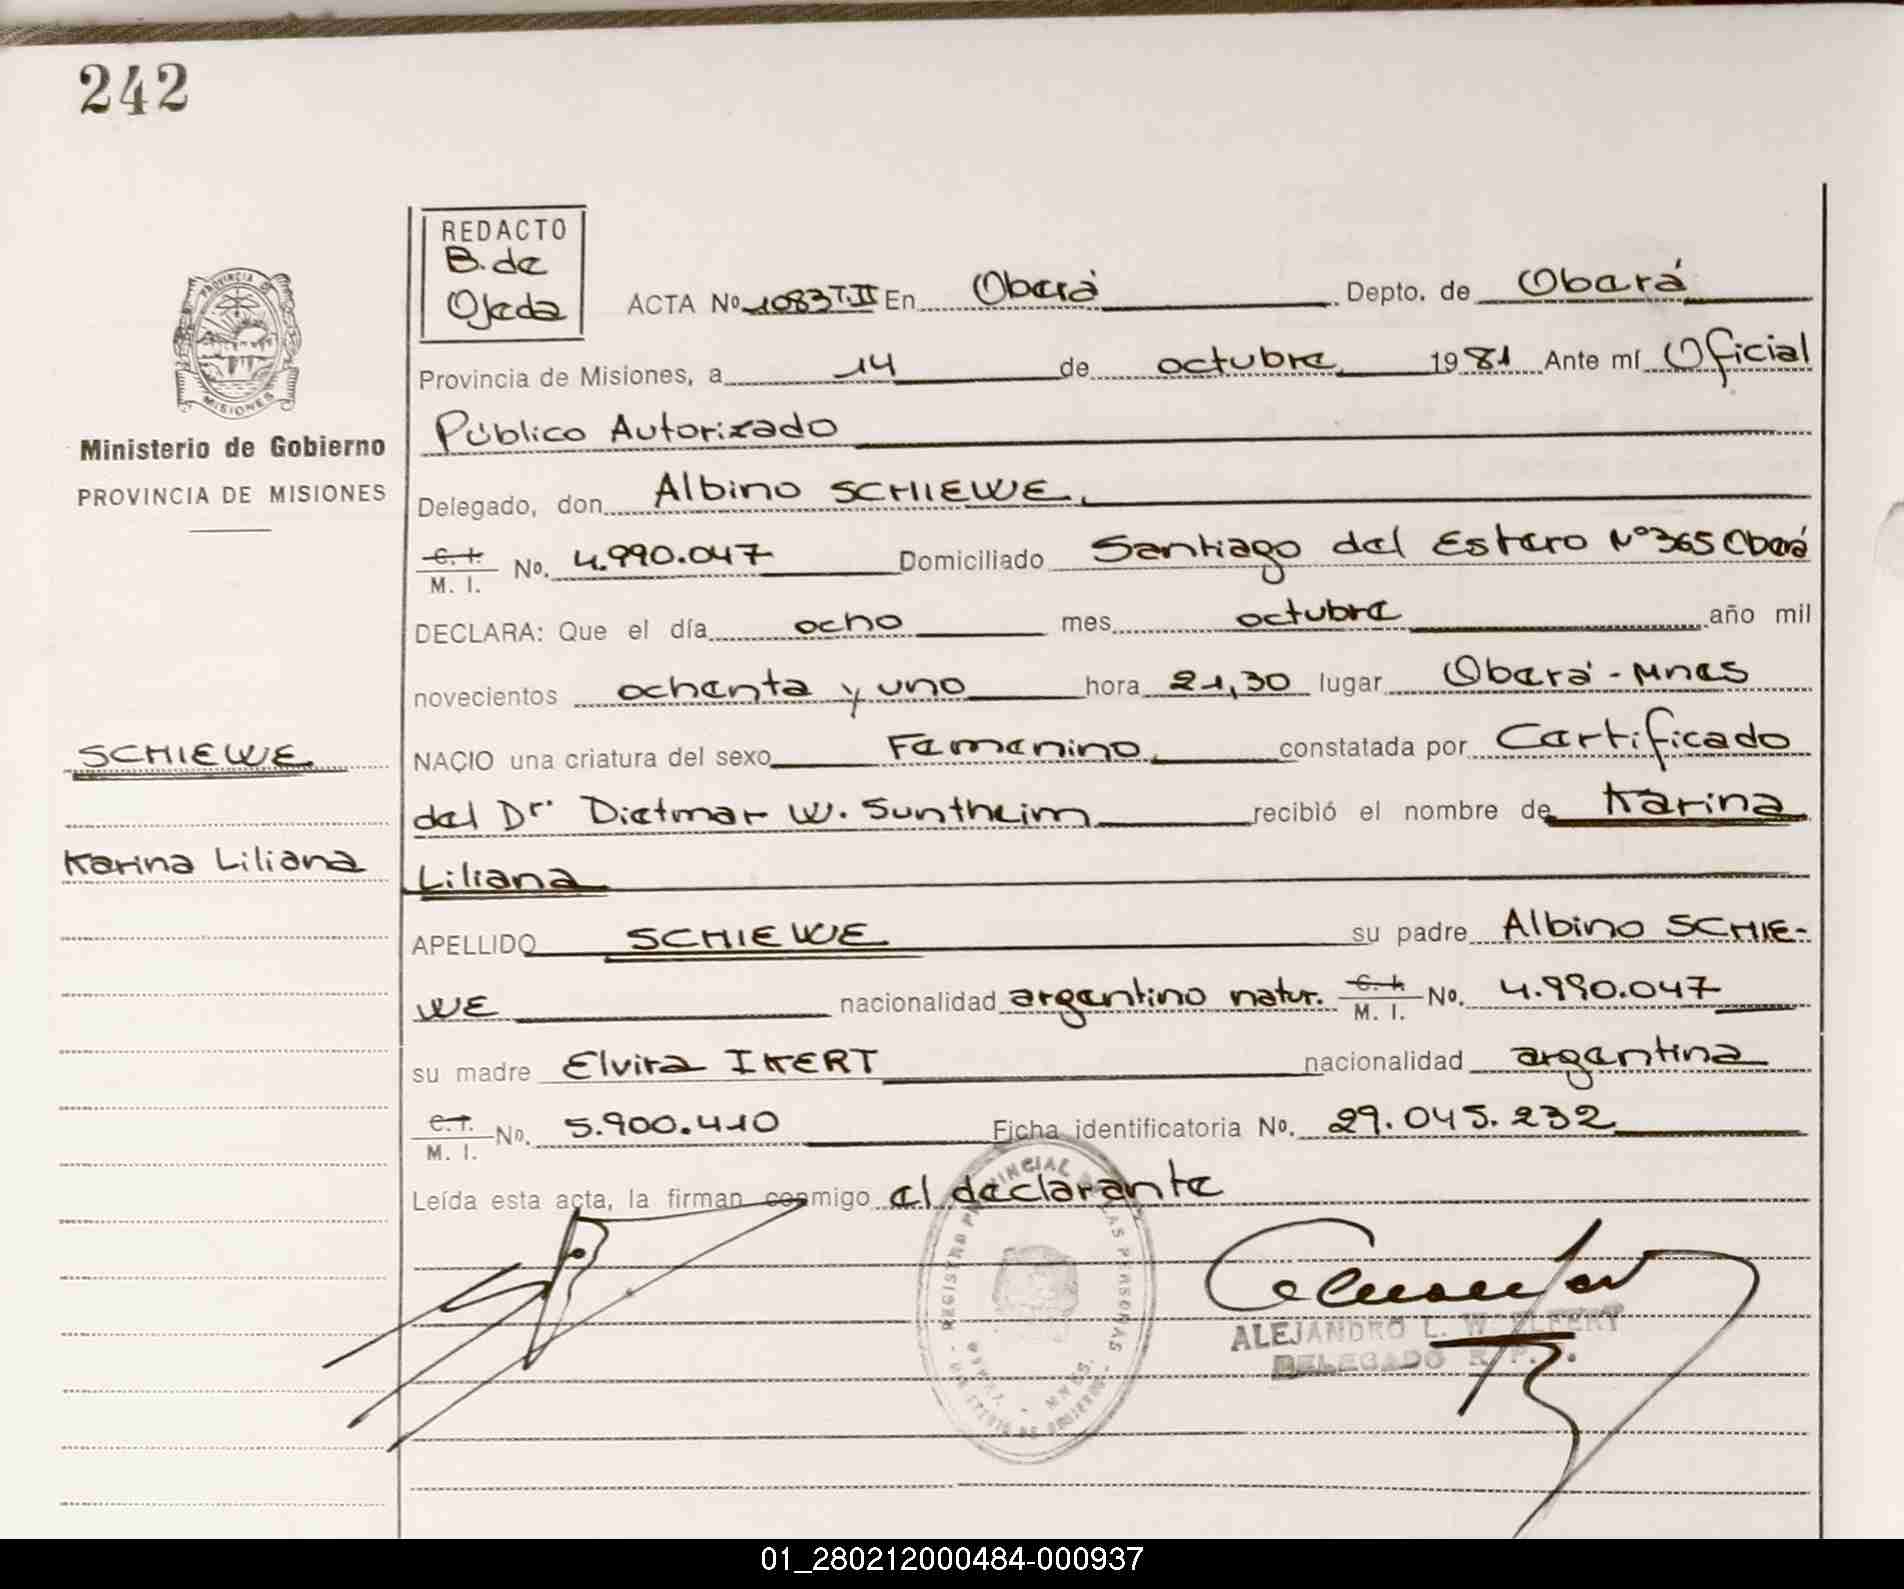 242
REDACTO
B. de
Ojeda
ACTA No. 1083 T.II En Oberá Depto. de Oberá
Provincia de Misiones, a 14 de octubre 1981 Ante mí Oficial
Público Autorizado
PROVINCIA DE
MISIONES
Ministerio de Gobierno
PROVINCIA DE MISIONES
Delegado, don Albino SCHIEWE.
C. I.
M. I. No. 4.990.047 Domiciliado Santiago del Estero Nº 365 Oberá
DECLARA: Que el día ocho mes octubre año mil
novecientos ochenta y uno hora 21,30 lugar Oberá - Mnes
SCHIEWE
NACIO una criatura del sexo Femenino constatada por Certificado
del Dr. Dietmar W. Suntheim recibió el nombre de Karina
Karina Liliana
Liliana
APELLIDO SCHIEWE su padre Albino SCHIE-
WE nacionalidad argentino natur. C. I. M. I. No. 4.990.047
su madre Elvira IKERT nacionalidad argentina
C. I.
M. I. No. 5.900.410 Ficha identificatoria No. 29.045.232
Leída esta acta, la firman conmigo el declarante
REGISTRO PROVINCIAL DE LAS PERSONAS
MINISTERIO DE GOBIERNO
OBERA - MNES.
ALEJANDRO L. W.
DELEGADO R. P. P.
01_280212000484-000937